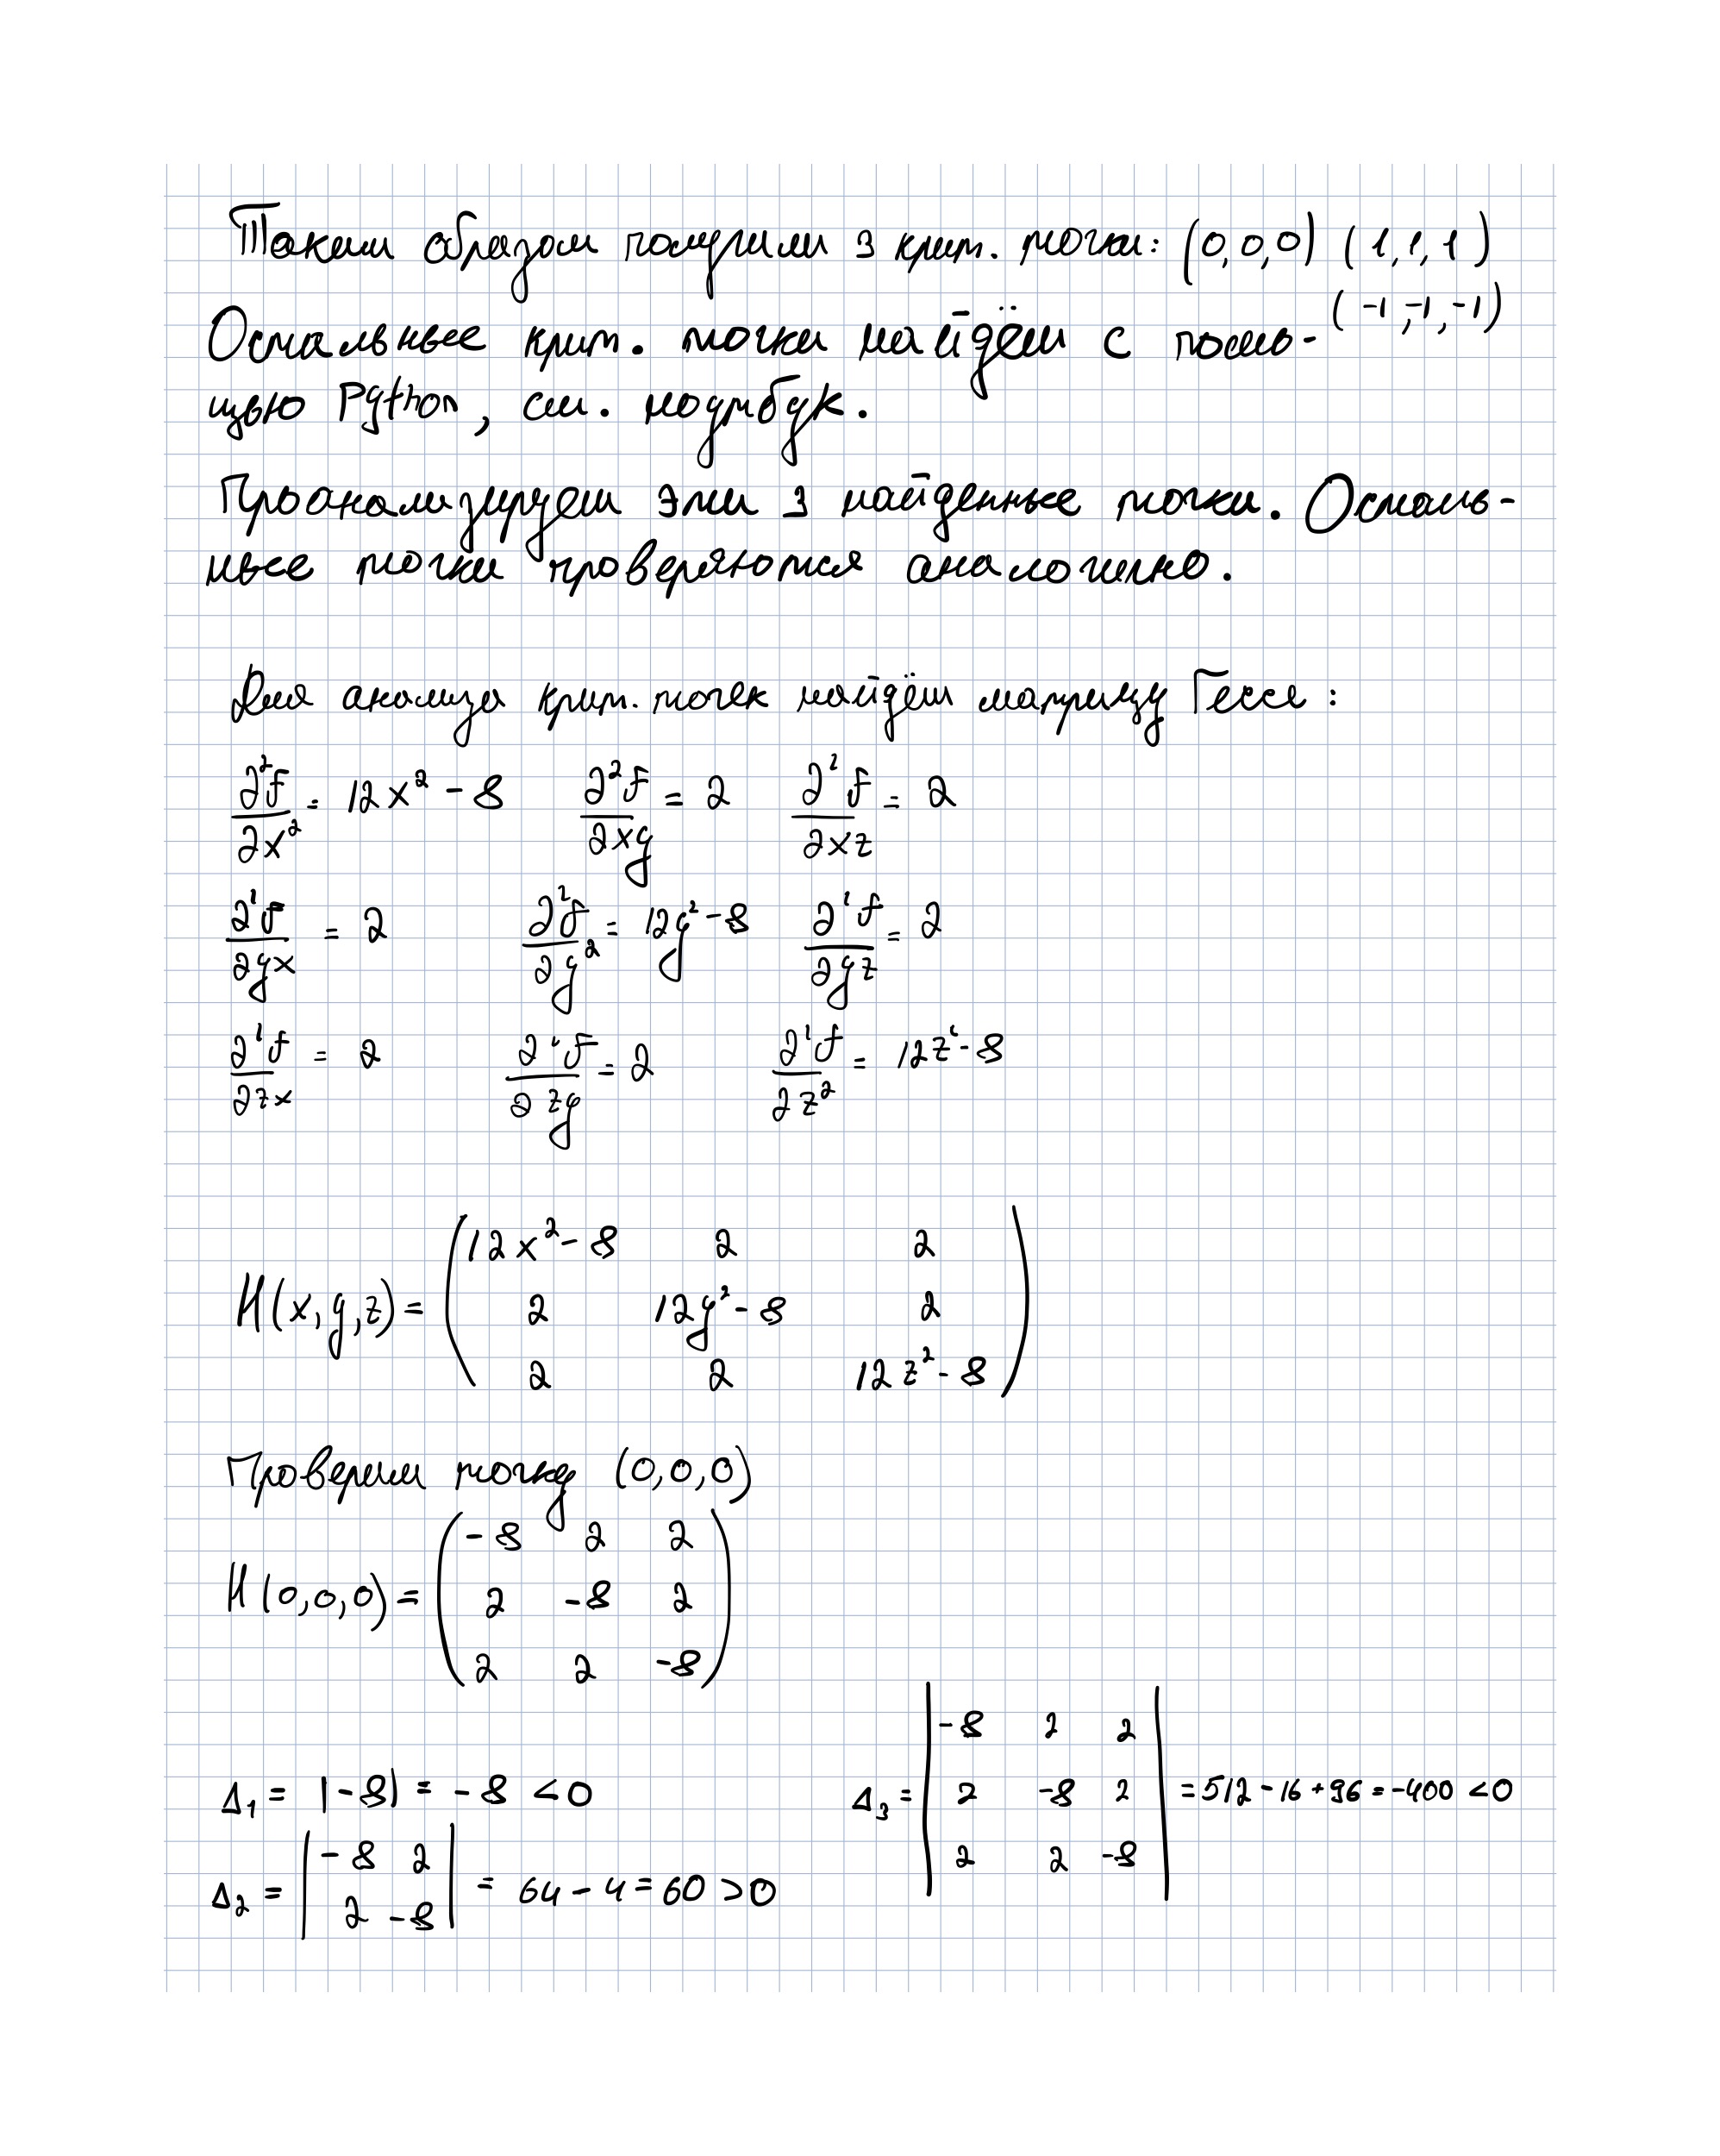 Таким образом получили 3 крит. точки: (0,0,0) (1,1,1)
(-1,-1,-1)
Остальные крит. точки найдём с помо-
щью Python, см. ноутбук.
Проанализируем эти 3 найденные точки. Осталь-
ные точки проверяются аналогично.
Для анализа крит. точек найдём матрицу Гессе:
∂²f/∂x² = 12x² - 8   ∂²f/∂xy = 2   ∂²f/∂xz = 2
∂²f/∂yx = 2   ∂²f/∂y² = 12y² - 8   ∂²f/∂yz = 2
∂²f/∂zx = 2   ∂²f/∂zy = 2   ∂²f/∂z² = 12z² - 8
12x² - 8   2   2
H(x,y,z) = 2   12y² - 8   2
2   2   12z² - 8
Проверим точку (0,0,0)
-8   2   2
H(0,0,0) = 2   -8   2
2   2   -8
Δ₁ = |-8| = -8 < 0
Δ₂ = |-8 2|
|2 -8| = 64 - 4 = 60 > 0
-8   2   2
Δ₃ = 2   -8   2 = 512 - 16 + 96 = -400 < 0
2   2   -8